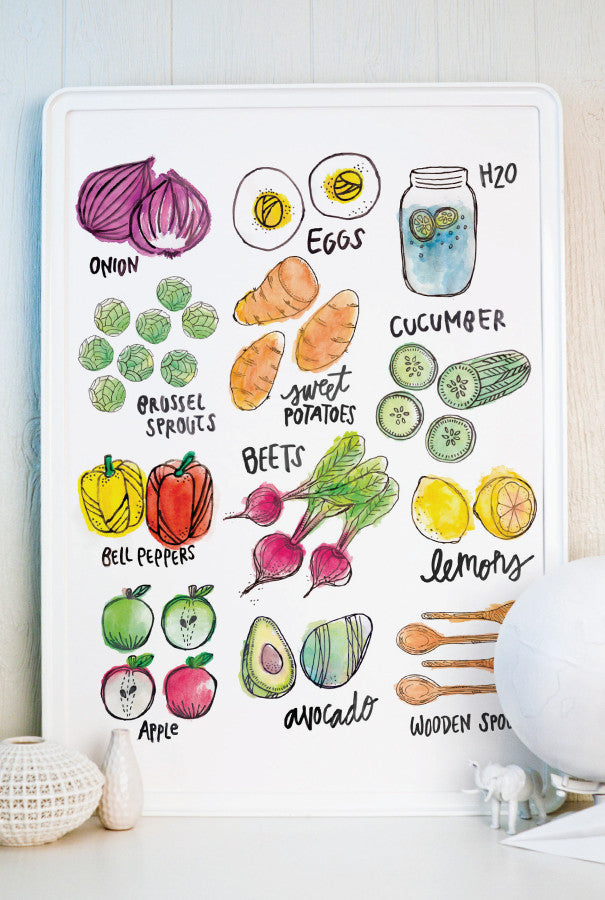 ONION
EGGS
H2O
BRUSSEL
SPROUTS
sweet
POTATOES
CUCUMBER
BELL PEPPERS
BEETS
lemons
Apple
avocado
WOODEN